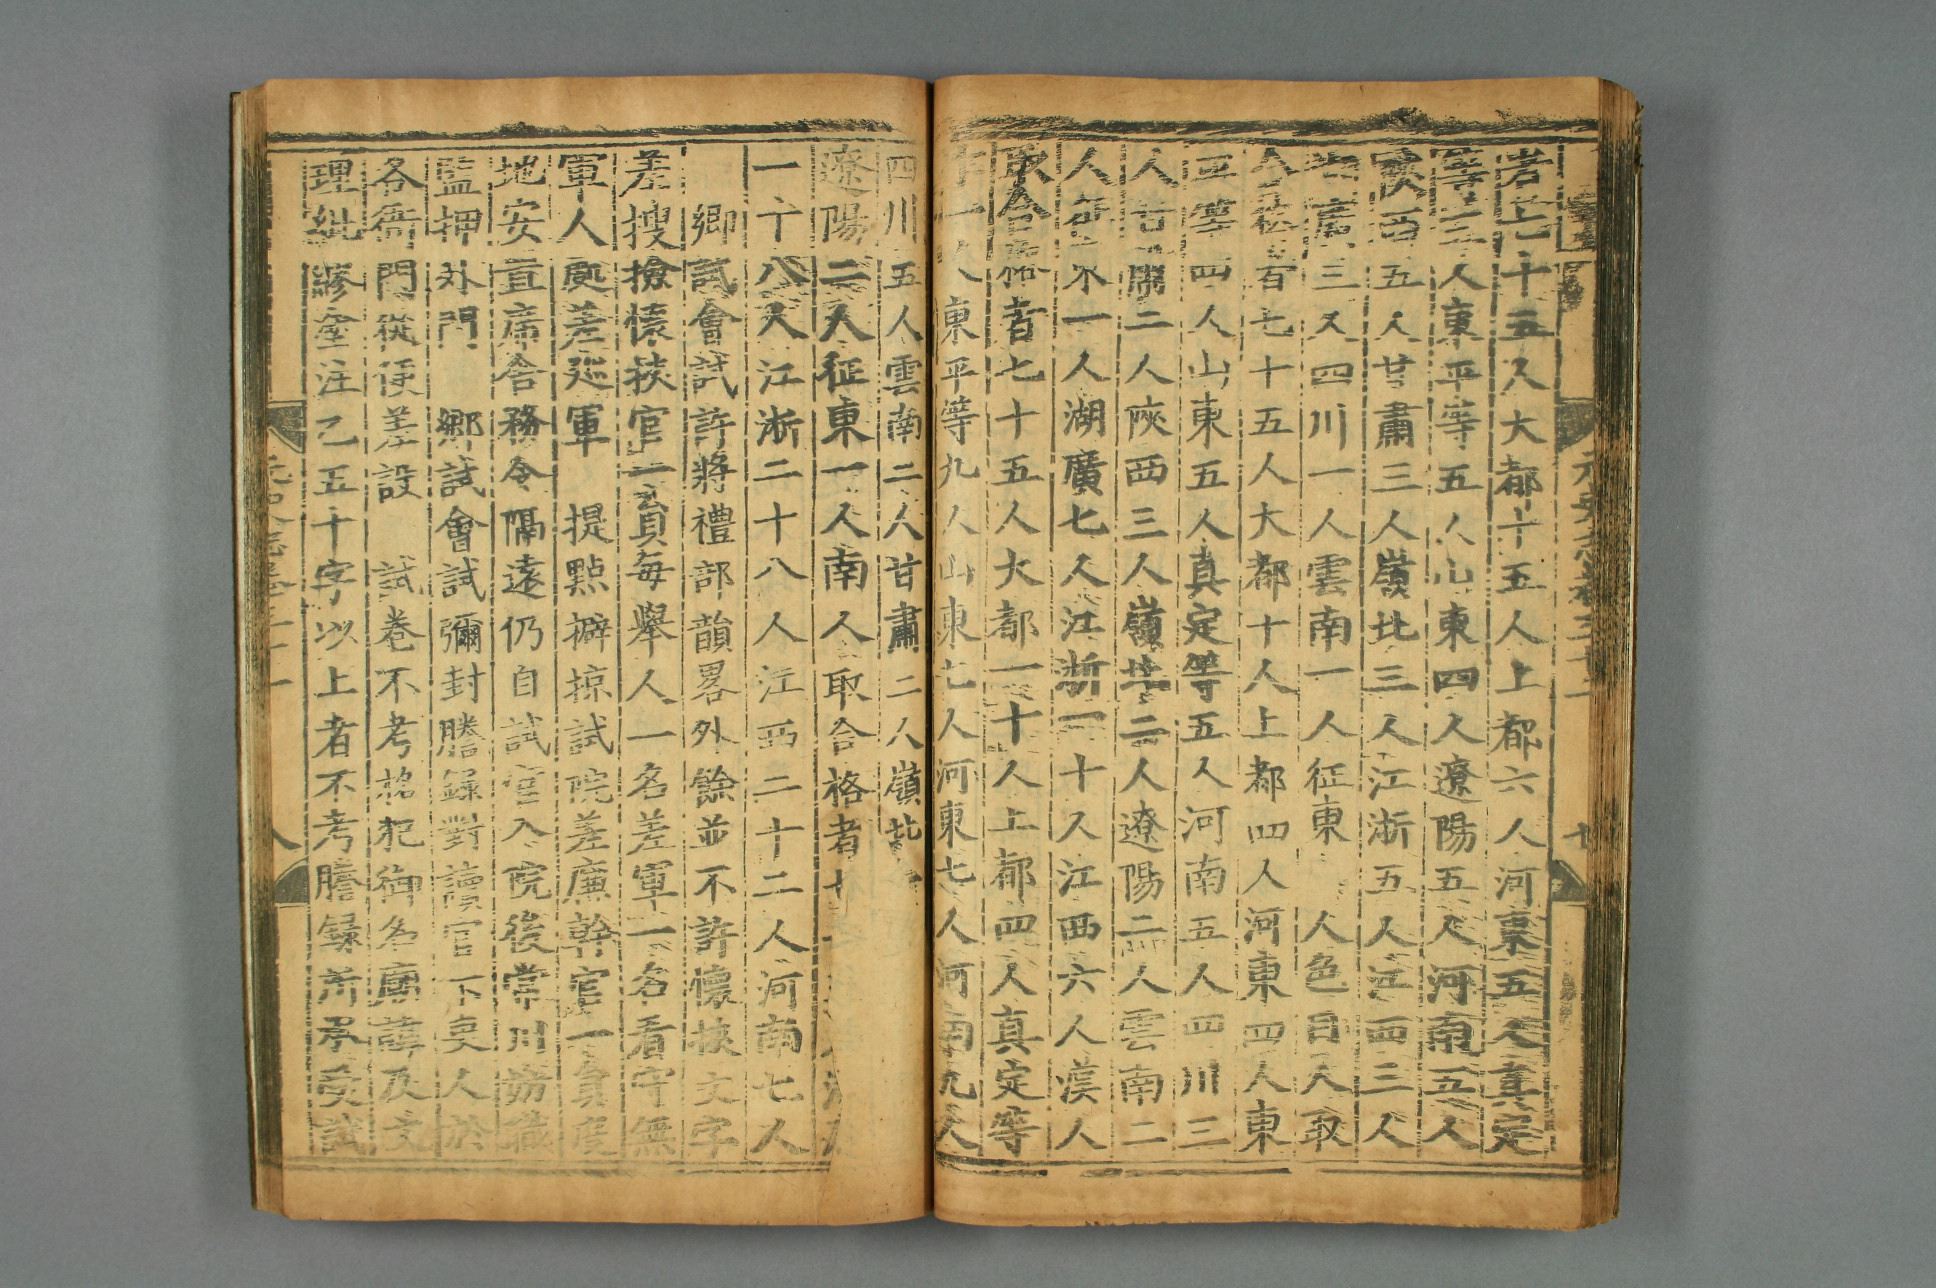 者七十五人大都十五人上都六人河東五人真定
等五人東平等五人山東四人遼陽五人河南五人
陝西五人甘肅三人嶺北三人江浙五人江西三人
湖廣三人四川一人雲南一人征東 人色目人取
合格者七十五人大都十人上都四人河東四人東
平等四人山東五人真定等五人河南五人四川三
人甘肅二人陝西三人嶺北二人遼陽二人雲南二
人征東一人湖廣七人江浙一十人江西六人漢人
取合格者七十五人大都一十人上都四人真定等
十一人東平等九人山東七人河東七人河南九人
四川五人雲南二人甘肅二人嶺北
遼陽二人征東一人南人取合格者七
一十八人江浙二十八人江西二十二人河南七人
鄉試會試許將禮部韻畧外餘並不許懷挾文字
差搜檢懷挾官一員每舉人一名差軍一名看守無
軍人處差巡軍 提點擗掠試院差廉幹官一員度
地安置席舍務令隔遠仍自試官入院後常川妨職
監押外門 鄉試會試彌封謄錄對讀官下吏人於
各衙門從便差設 試卷不考格犯御名廟諱及文
理紕繆塗注乙五十字以上者不考謄錄所承受試
八